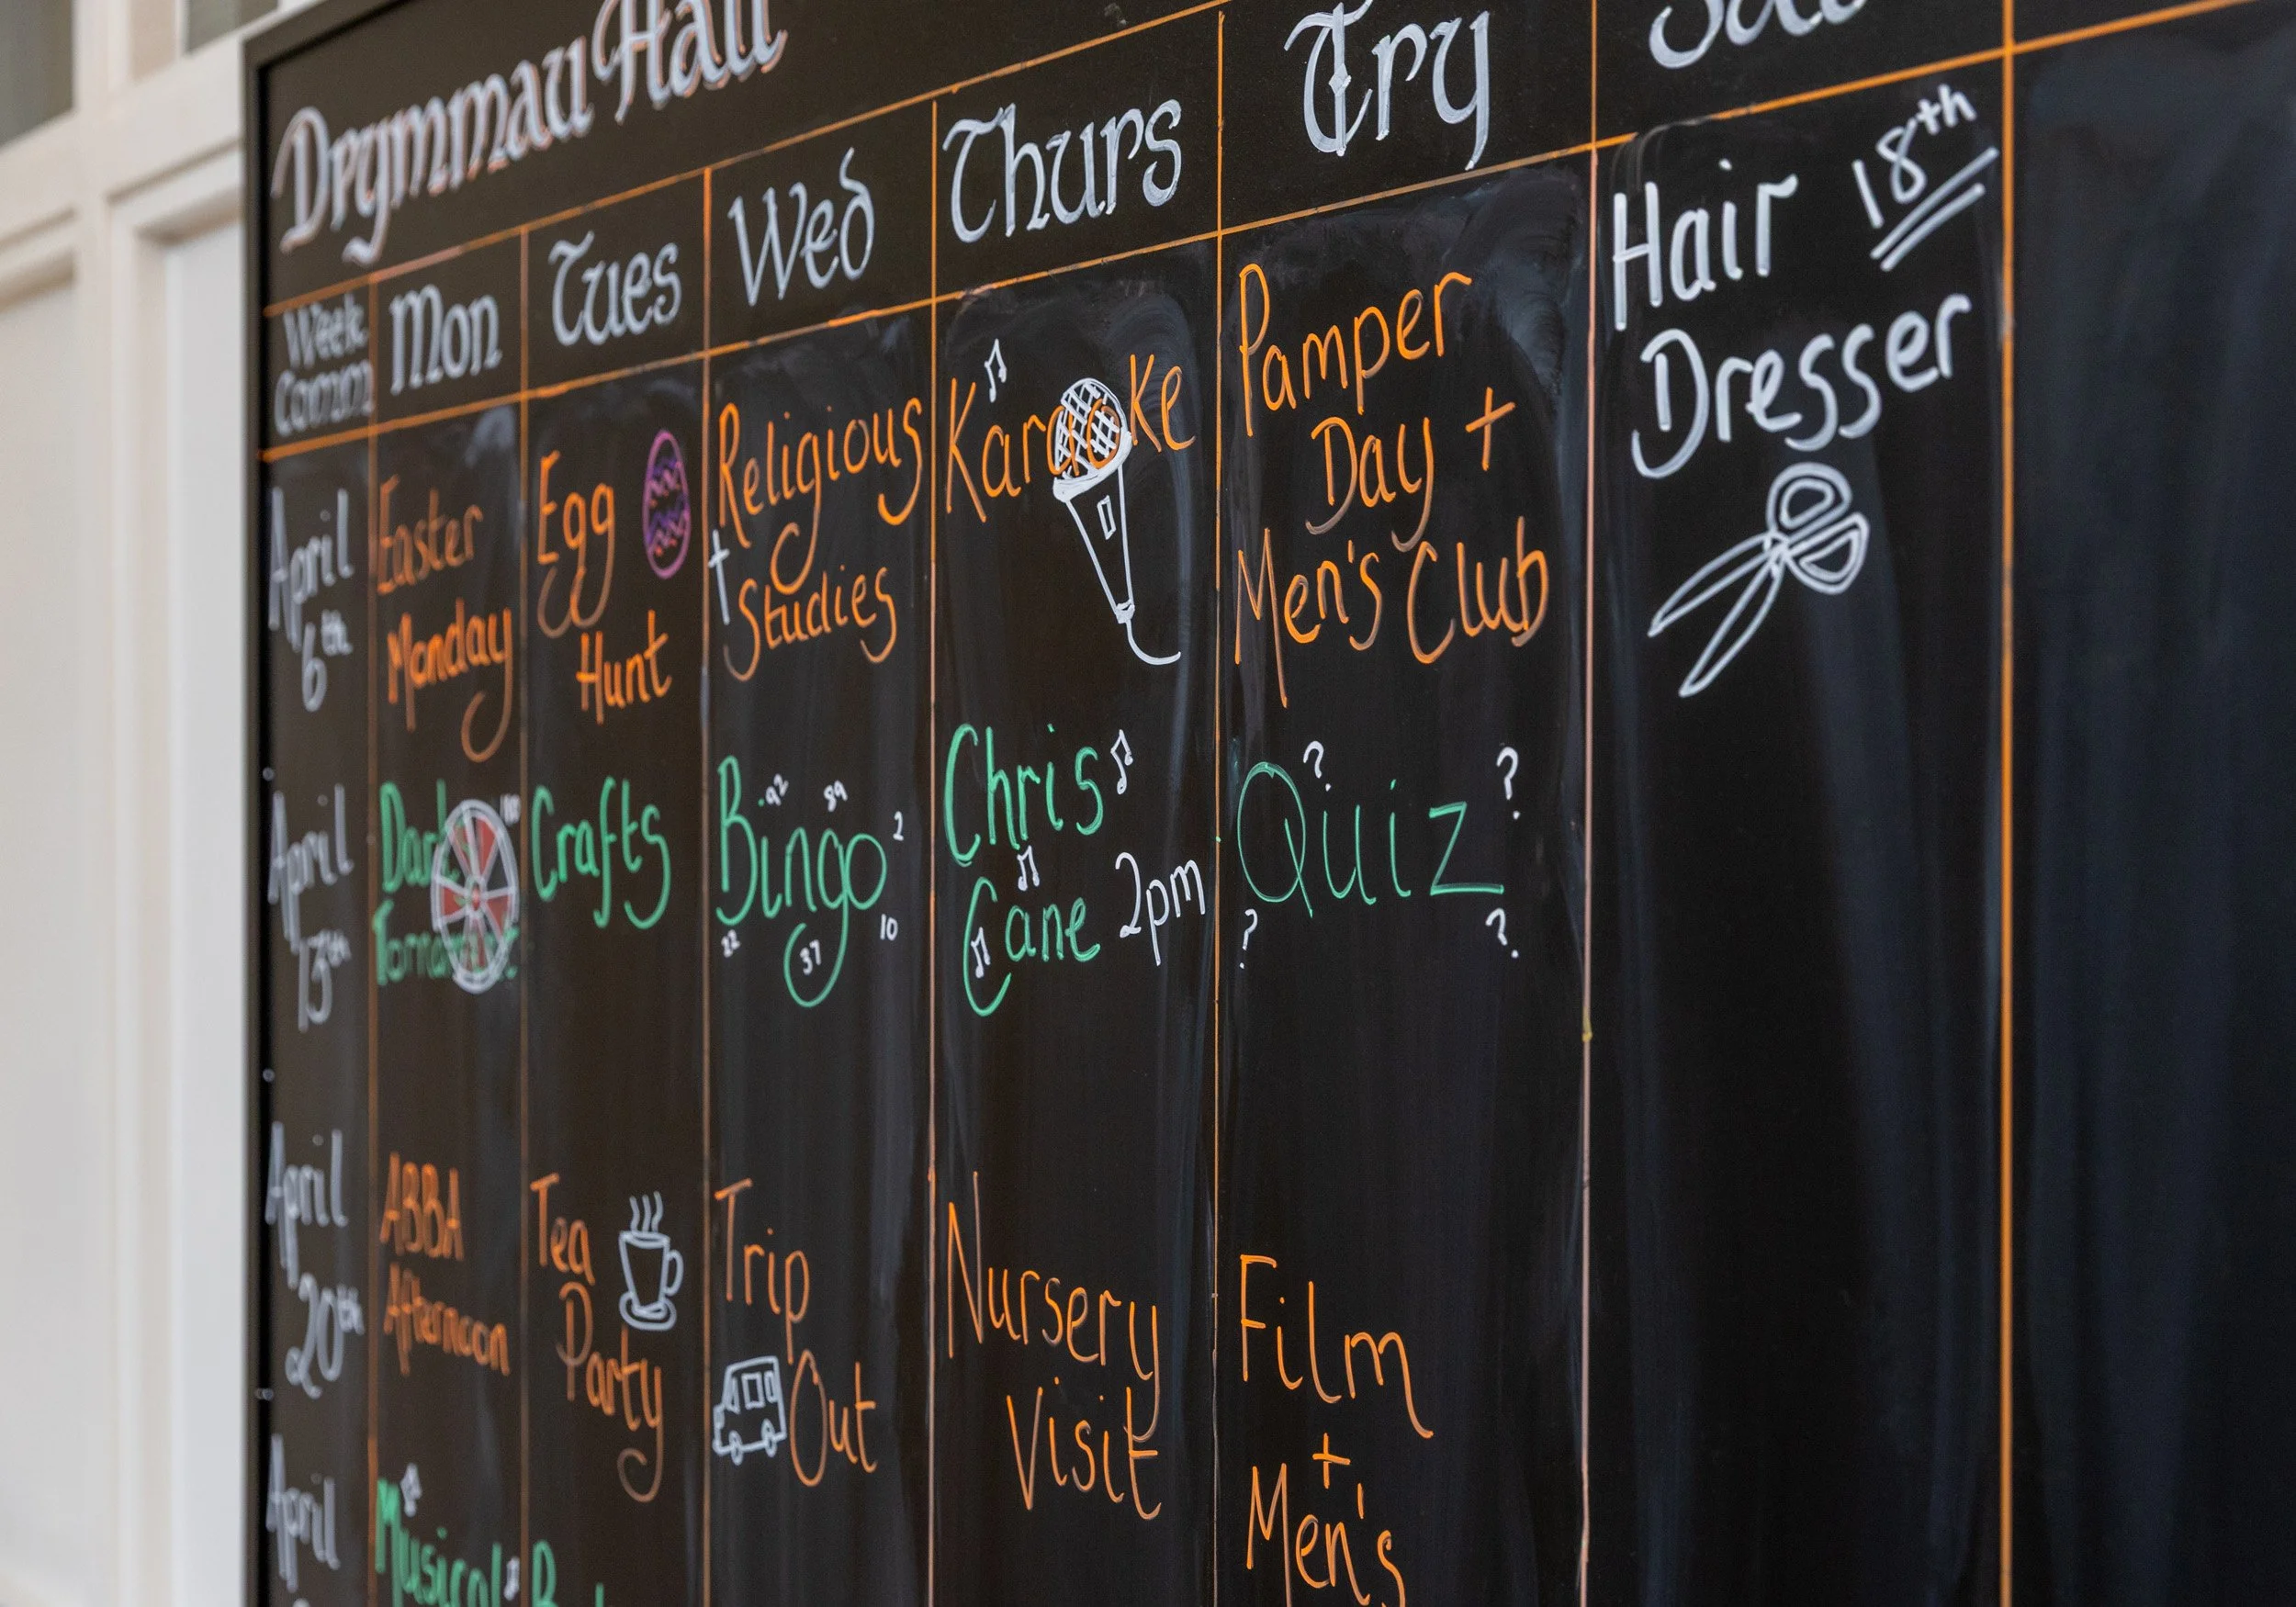 Drymmau Hall
Week Comm
Mon
Tues
Wed
Thurs
Fry
April 6th
Easter
Monday
Egg
Hunt
Religious
Studies
Karaoke
Pamper
Day +
Men's Club
Hair 18th
Dresser
April 13th
Crafts
Bingo
92
89
2
22
37
10
Chris
Cane 2pm
Quiz
? ? ? ?
April 20th
ABBA
Afternoon
Tea
Party
Trip
Out
Nursery
Visit
Film
+
Men's
April
Musical